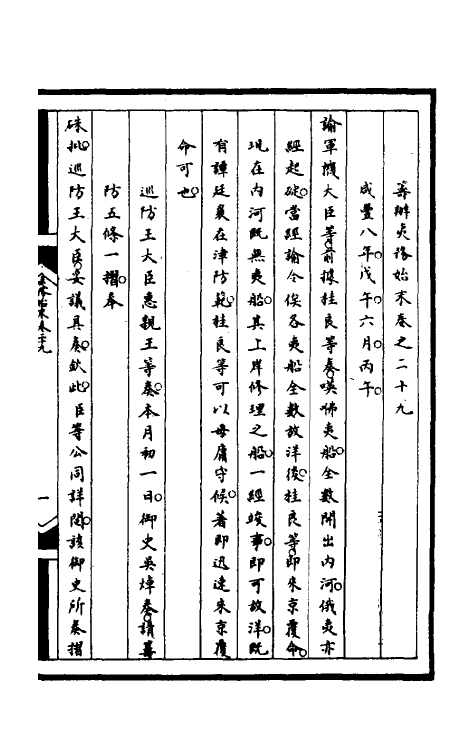 籌辦夷務始末卷之二十九
咸豐八年戊午六月丙午
諭軍機大臣等前據桂良等奏㗎咈夷船全數開出內河俄夷亦
經起碇當經諭令俟各夷船全數放洋後桂良等即來京覆命
現在內河既無夷船其上岸修理之船一經竣事即可放洋既
有譚廷襄在津防範桂良等可以毋庸守候著即迅速來京覆
命可也
巡防王大臣惠親王等奏本月初一日御史吳焯奏請籌
防五條一摺奉
硃批巡防王大臣妥議具奏欽此臣等公同詳閱該御史所奏摺
卷二十九
一